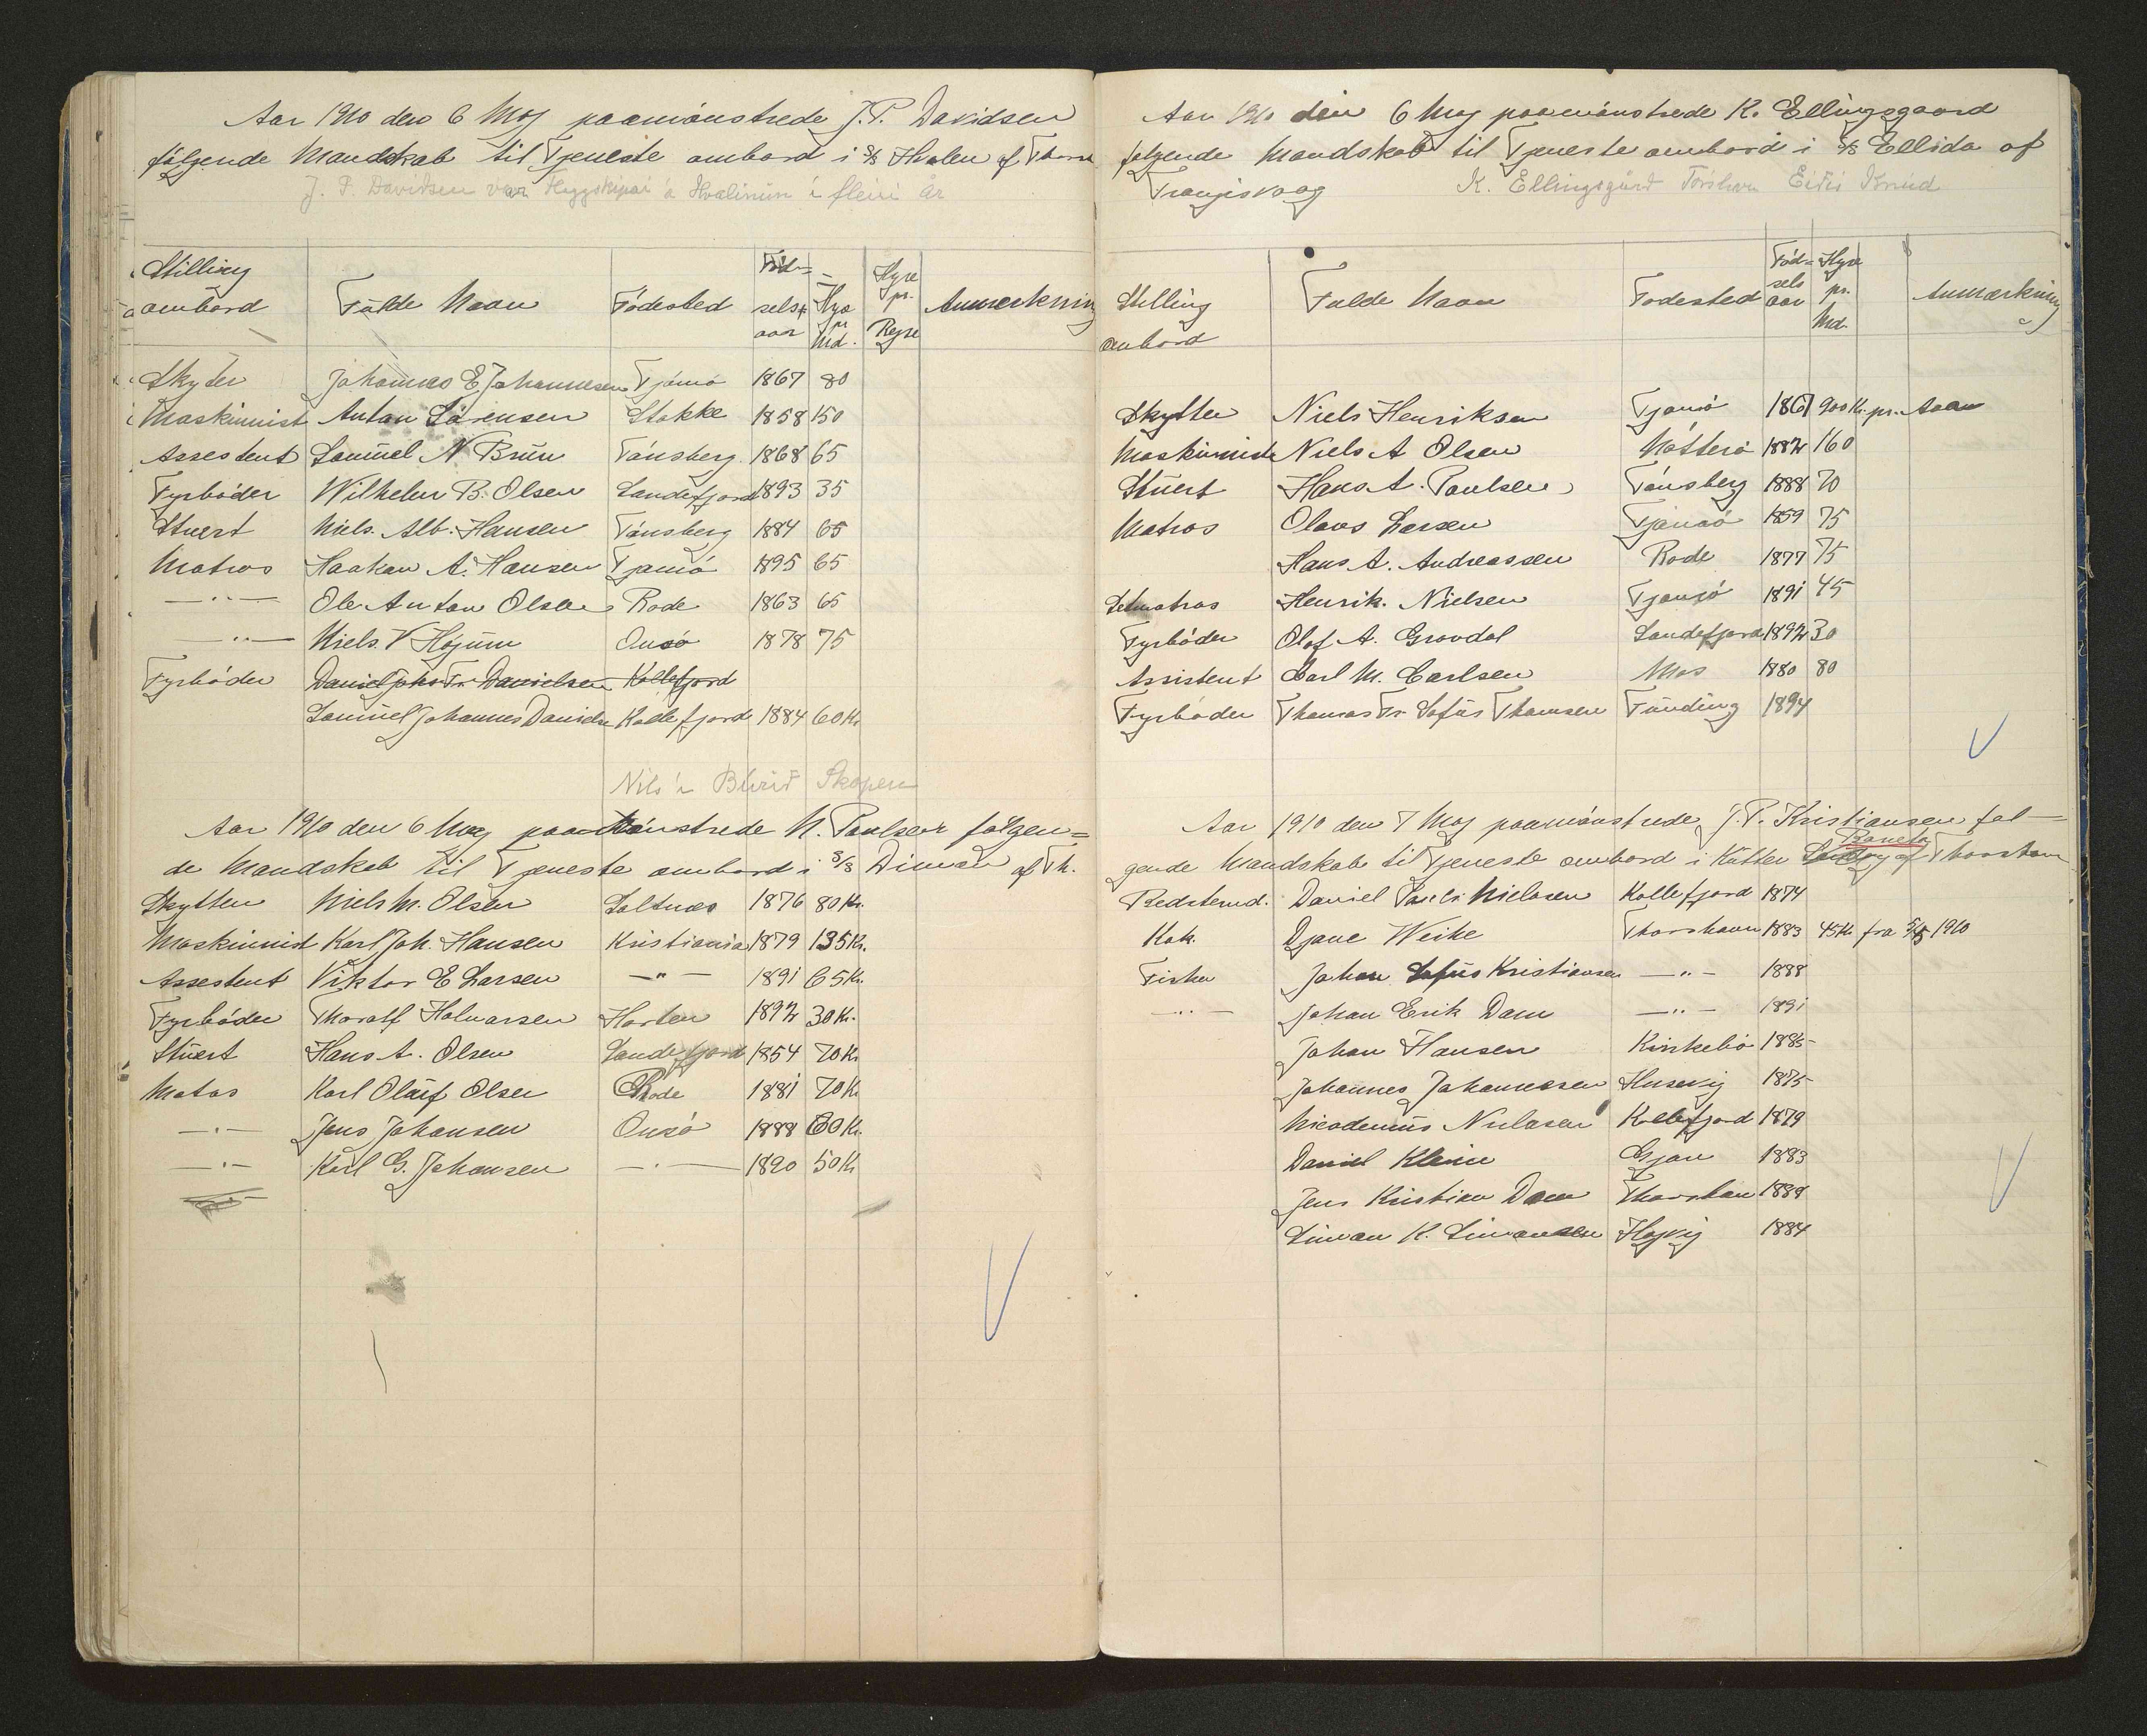 Aar 1910 den 6 Maj paamönstrede J. P. Davidsen
följgende Mandskab til Tjeneste ombord i S/S Hvalen af Thorsh
J. P. Davidsen var Flyggskipari á Hvalinum í fleiri år
Stilling ombord Fulde Navn Födested Föd=sels aar Hyre pr Md. Hyre pr. Rejse Anmerkning
Skyter Johannes E. Johannesen Tjömö 1867 80
Maskinnist Anton Sörensen Stokke 1858 150
Assestent Samuel N Bruu Tönsberg 1868 65
Fyrböder Wilhelm B. Olsen Sandefjord 1893 35
Stuert Niels. Alb. Hansen Tönsberg 1884 65
Matros Haakon A. Hansen Tjömö 1895 65
—"— Ole Anton Olsen Rode 1863 65
—"— Niels. V Höjum Onsö 1878 75
Fyrböder Daniel Johs Fr. Danielsen Kollefjord
Samuel Johannes Danielsen Kollefjord 1884 60 Kr
Nils í Búrið Skopen
Aar 1910 den 6 Maj paamönstrede N. Poulsen fölgen=
de Mandskab til Tjeneste ombord i S/S Dimon af Th.
Skytten Niels M. Olsen Saltnes 1876 80 Kr.
Maskinnist Karl Joh. Hansen Kristiania 1879 135 Kr.
Assestent Viktor E Larsen —"— 1891 65 Kr.
Fyrböder Thoralf Halvarsen Horten 1892 30 Kr.
Stuert Hans A. Olsen Sandefjord 1854 70 Kr
Matos Karl Oluf Olsen Rode 1881 70 Kr
—"— Jens Johansen Onsö 1888 60 Kr.
—"— Karl G. Johansen —"— 1890 50 Kr
Aar 1910 den 6 Maj paamönstrede K. Ellingsgaard
følgende Mandskab til Tjeneste ombord i S/S Ellida af
Trangisvaag K. Ellingsgård Tórshavn
Stilling ombord Fulde Navn Fodested Föd=sels aar Hyre pr. Md. Anmærkning
Skytter Niels Henriksen Tjømö 1861 900 Kr. pr. Aar
Maskinnist Niels A Olsen Nötterö 1882 160
Stuert Hans A. Paulsen Tönsberg 1888 70
Matros Olavs Larsen Tjömö 1859 75
Hans A. Andreassen Rode 1877 75
Letmatros Henrik. Nielsen Tjømø 1891 45
Fyrböder Olaf A. Grovdal Sandefjord 1892 30
Assistent Carl M. Carlsen Mos 1880 80
Fyrböder Thomas Fr. Sofus Thomsen Funding 1894
Aar 1910 den 7 Maj paamönstrede J. P. Kristiansen føl=
gende Mandskab til Tjeneste ombord i Kutter af Thorshavn
Bedstemd. Daniel Pauli Nielasen Kollefjord 1874
Kok. Djone Weihe Thorshavn 1883 45 Kr fra 5/5 1910
Fisker Johan Sofus Kristiansen —"— 1888
—"— Johan Erik Dam —"— 1891
Johan Hansen Kirkebö 1885
Johannes Johannessen Husevig 1875
Nicodemus Niclasen Kollefjord 1879
Daniel Klein Gjov 1883
Jens Kristian Dam Thorshavn 1889
Simon K. Simonsen Højvig 1884